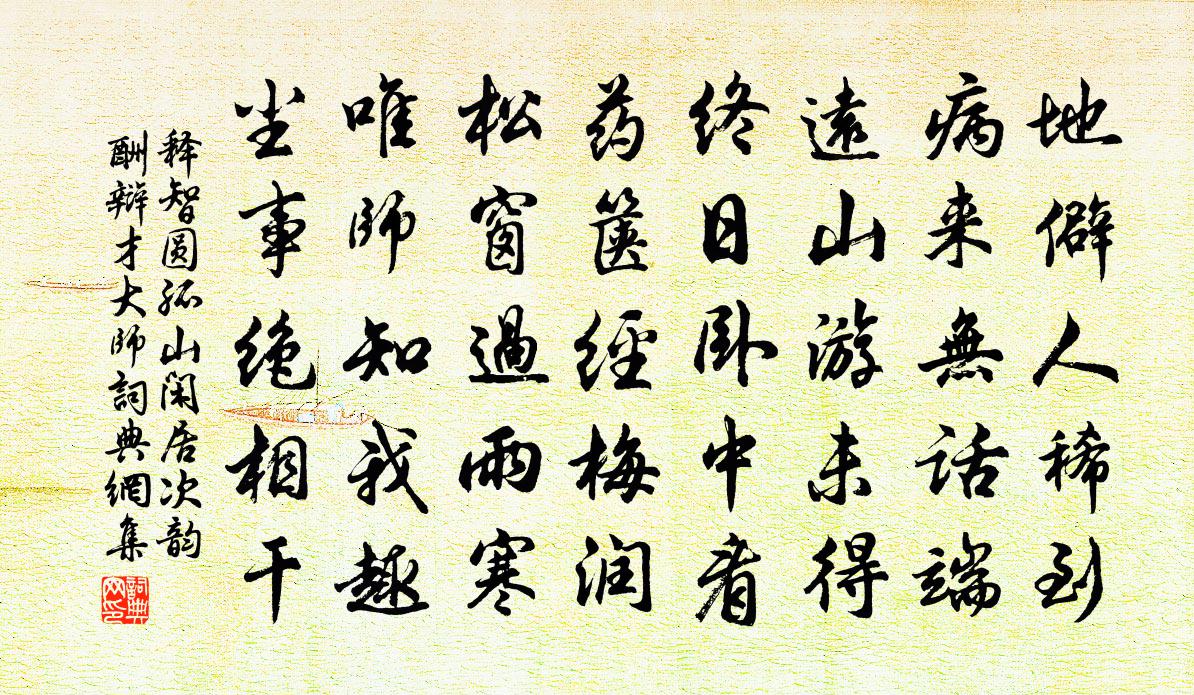 地僻人稀到
病来無话端
遠山游未得
终日卧中看
药箧經梅润
松窗過雨寒
唯師知我趣
尘事绝相干
释智圆孤山閑居次韵
酬辩才大師詞典網集
詞典网印